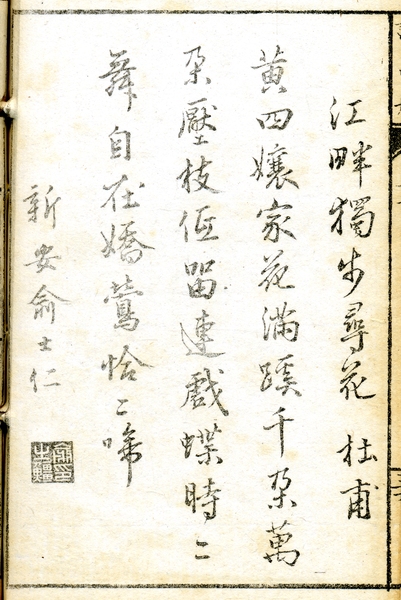 江畔獨步尋花 杜甫
黃四孃家花滿蹊千朶萬
朶壓枝低畱連戲蝶時〻
舞自在嬌鶯恰〻啼
新安俞士仁